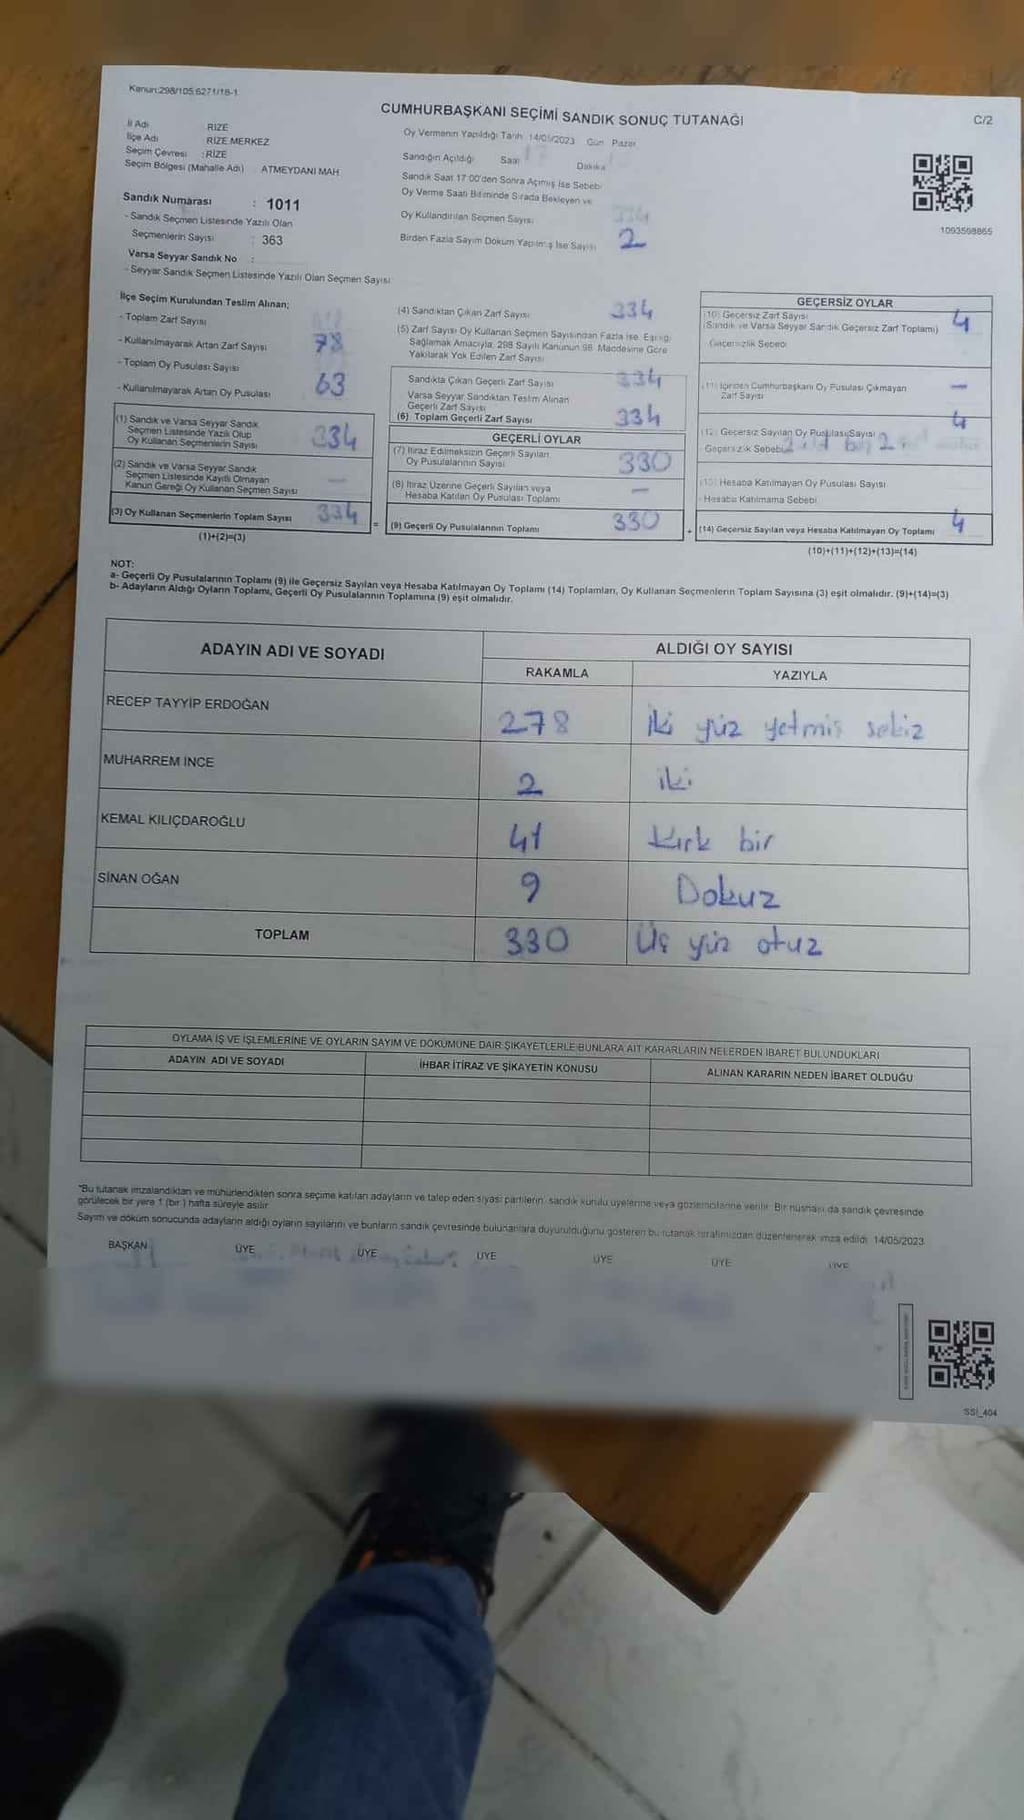 Kanun:298/105.6271/18-1
CUMHURBAŞKANI SEÇİMİ SANDIK SONUÇ TUTANAĞI
C/2
İl Adı : RİZE
İlçe Adı : RİZE MERKEZ
Seçim Çevresi : RİZE
Seçim Bölgesi (Mahalle Adı) : ATMEYDANI MAH
Sandık Numarası : 1011
- Sandık Seçmen Listesinde Yazılı Olan
Seçmenlerin Sayısı : 363
Varsa Seyyar Sandık No :
- Seyyar Sandık Seçmen Listesinde Yazılı Olan Seçmen Sayısı
Oy Vermenin Yapıldığı Tarih 14/05/2023 Gün Pazar
Sandığın Açıldığı Saat Dakika
Sandık Saat 17:00'den Sonra Açılmış İse Sebebi
Oy Verme Saati Bitiminde Sırada Bekleyen ve
Oy Kullandırılan Seçmen Sayısı 334
Birden Fazla Sayım Döküm Yapılmış İse Sayısı 2
1093598865
İlçe Seçim Kurulundan Teslim Alınan;
- Toplam Zarf Sayısı
- Kullanılmayarak Artan Zarf Sayısı 78
- Toplam Oy Pusulası Sayısı
- Kullanılmayarak Artan Oy Pusulası 63
(1) Sandık ve Varsa Seyyar Sandık
Seçmen Listesinde Yazılı Olup
Oy Kullanan Seçmenlerin Sayısı 334
(2) Sandık ve Varsa Seyyar Sandık
Seçmen Listesinde Kayıtlı Olmayan
Kanun Gereği Oy Kullanan Seçmen Sayısı —
(3) Oy Kullanan Seçmenlerin Toplam Sayısı 334
(1)+(2)=(3)
(4) Sandıktan Çıkan Zarf Sayısı 334
(5) Zarf Sayısı Oy Kullanan Seçmen Sayısından Fazla İse, Eşitliği
Sağlamak Amacıyla, 298 Sayılı Kanunun 98. Maddesine Göre
Yakılarak Yok Edilen Zarf Sayısı
Sandıkta Çıkan Geçerli Zarf Sayısı 334
Varsa Seyyar Sandıktan Teslim Alınan
Geçerli Zarf Sayısı
(6) Toplam Geçerli Zarf Sayısı 334
GEÇERLİ OYLAR
(7) İtiraz Edilmeksizin Geçerli Sayılan
Oy Pusulalarının Sayısı 330
(8) İtiraz Üzerine Geçerli Sayılan veya
Hesaba Katılan Oy Pusulası Toplamı —
= (9) Geçerli Oy Pusulalarının Toplamı 330
GEÇERSİZ OYLAR
(10) Geçersiz Zarf Sayısı 4
(Sandık ve Varsa Seyyar Sandık Geçersiz Zarf Toplamı)
Geçersizlik Sebebi
(11) İçinden Cumhurbaşkanı Oy Pusulası Çıkmayan
Zarf Sayısı —
(12) Geçersiz Sayılan Oy Pusulası Sayısı 4
Geçersizlik Sebebi
(13) Hesaba Katılmayan Oy Pusulası Sayısı
- Hesaba Katılmama Sebebi
+ (14) Geçersiz Sayılan veya Hesaba Katılmayan Oy Toplamı 4
(10)+(11)+(12)+(13)=(14)
NOT:
a- Geçerli Oy Pusulalarının Toplamı (9) ile Geçersiz Sayılan veya Hesaba Katılmayan Oy Toplamı (14) Toplamları, Oy Kullanan Seçmenlerin Toplam Sayısına (3) eşit olmalıdır. (9)+(14)=(3)
b- Adayların Aldığı Oyların Toplamı, Geçerli Oy Pusulalarının Toplamına (9) eşit olmalıdır.
ADAYIN ADI VE SOYADI ALDIĞI OY SAYISI
RAKAMLA YAZIYLA
RECEP TAYYİP ERDOĞAN 278 İki yüz yetmiş sekiz
MUHARREM İNCE 2 iki
KEMAL KILIÇDAROĞLU 41 Kırk bir
SİNAN OĞAN 9 Dokuz
TOPLAM 330 Üç yüz otuz
OYLAMA İŞ VE İŞLEMLERİNE VE OYLARIN SAYIM VE DÖKÜMÜNE DAİR ŞİKAYETLERLE BUNLARA AİT KARARLARIN NELERDEN İBARET BULUNDUKLARI
ADAYIN ADI VE SOYADI İHBAR İTİRAZ VE ŞİKAYETİN KONUSU ALINAN KARARIN NEDEN İBARET OLDUĞU
"Bu tutanak imzalandıktan ve mühürlendikten sonra seçime katılan adayların ve talep eden siyasi partilerin, sandık kurulu üyelerine veya gözlemcilerine verilir. Bir nüshası da sandık çevresinde
görülecek bir yere 1 (bir) hafta süreyle asılır.
Sayım ve döküm sonucunda adayların aldığı oyların sayılarını ve bunların sandık çevresinde bulunanlara duyurulduğunu gösteren bu tutanak tarafımızdan düzenlenerek imza edildi. 14/05/2023
BAŞKAN ÜYE ÜYE ÜYE ÜYE ÜYE ÜYE
SSI_404